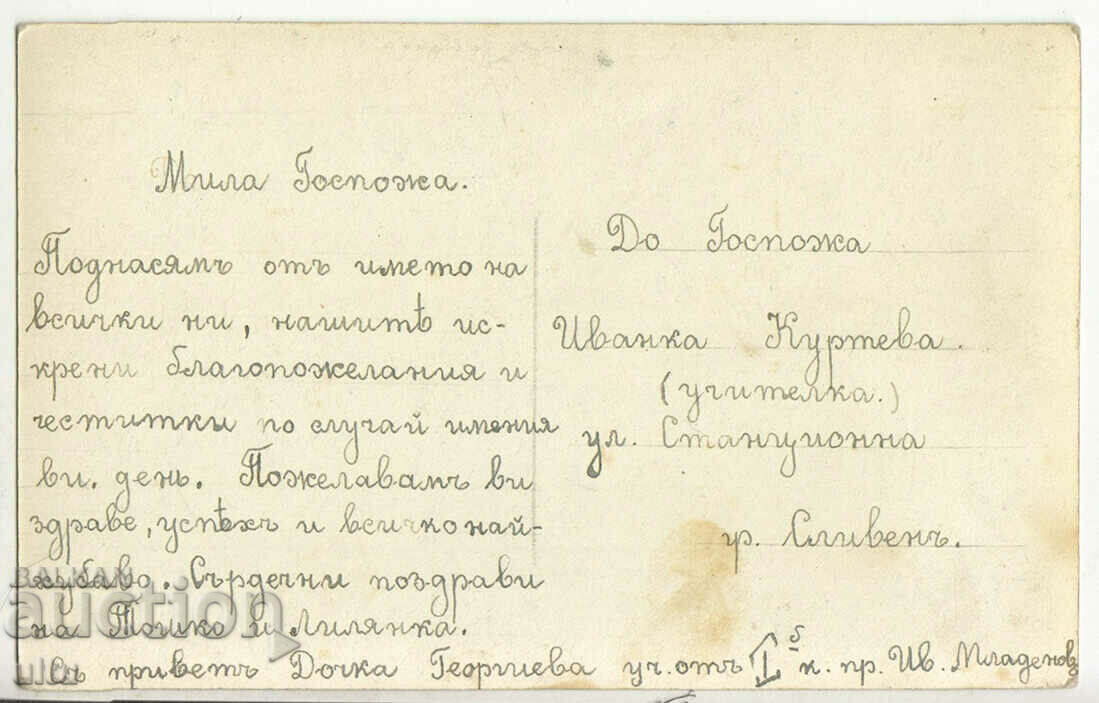 Мила Госпожа.
Поднасямъ отъ името на
всички ни, нашитѣ ис-
крени благопожелания и
честитки по случай имения
ви. день. Пожелавамъ ви
здраве, успѣхъ и всичко най-
хубаво. Сърдечни поздрави
на Тошко и Лилянка.
Съ приветъ Дочка Георгиева уч. отъ I б к. пр. Ив. Младеновъ
До Госпожа
Иванка Куртева.
(учителка.)
ул. Станционна
гр. Сливенъ.
BALKAN
auction